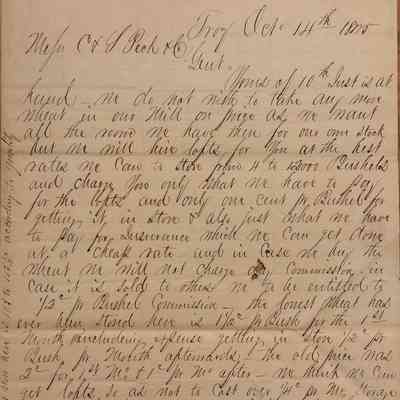 Troy Oct. 14th 1875
Messr C & S Peck & Co
Gent.
Yours of 10th Inst is at
hand - we do not wish to take any more
wheat in our Mill on price as we want
all the room we have there for our own stock
but we will hire lofts for You at the best
rates we can to store from 4 to Bushels
and charge You only what we have to pay
for the lofts and only one cent pr Bushel for
getting it in store & also just what we have
to pay for Insurance which we can get done
at a cheap rate and in case we buy the
wheat we will not charge any Commission in
case it is sold to others we to be entitled to
1/2c pr Bushel Commission - the lowest wheat has
ever been stored here is 1 1/2c pr Bush for the 1st
Month including expense getting in store 1/2c pr
Bush pr Month afterwards - the old price was
2c for 1st Mo & 1c pr Mo after - we think we can
get lofts so as not to cost over 1/4c pr Mo Storage
here is according to quality